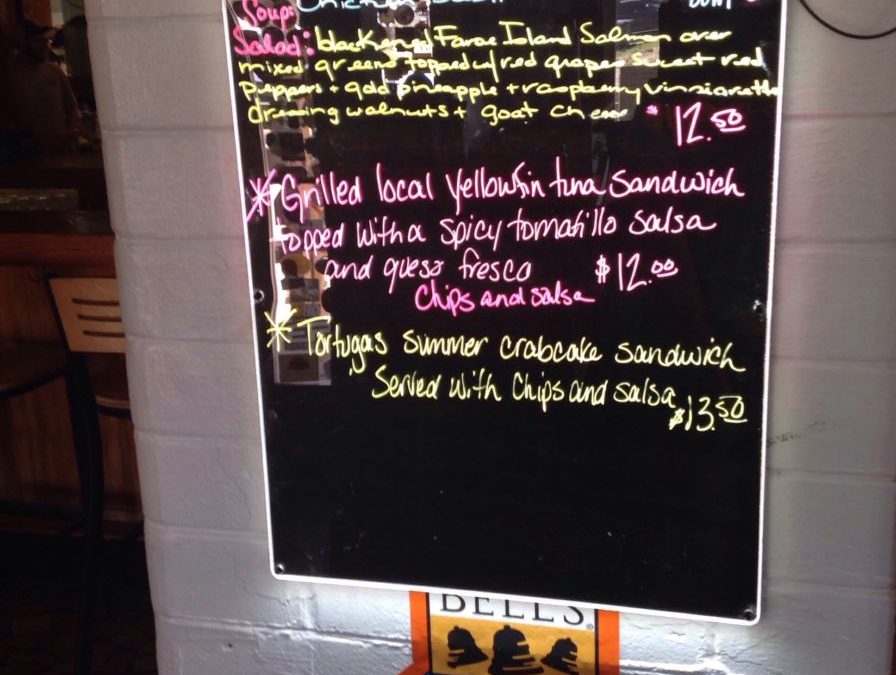 Soup: Chicken
Salad: blackened Faroe Island Salmon over
mixed greens topped w/ red grapes sweet red
peppers + gold pineapple + raspberry vinaigarette
dressing walnuts + goat cheese $12.50
* Grilled local yellowfin tuna Sandwich
topped with a spicy tomatillo salsa
and queso fresco $12.00
Chips and salsa
* Tortugas summer crabcake sandwich
Served with Chips and salsa
$13.50
BELL'S